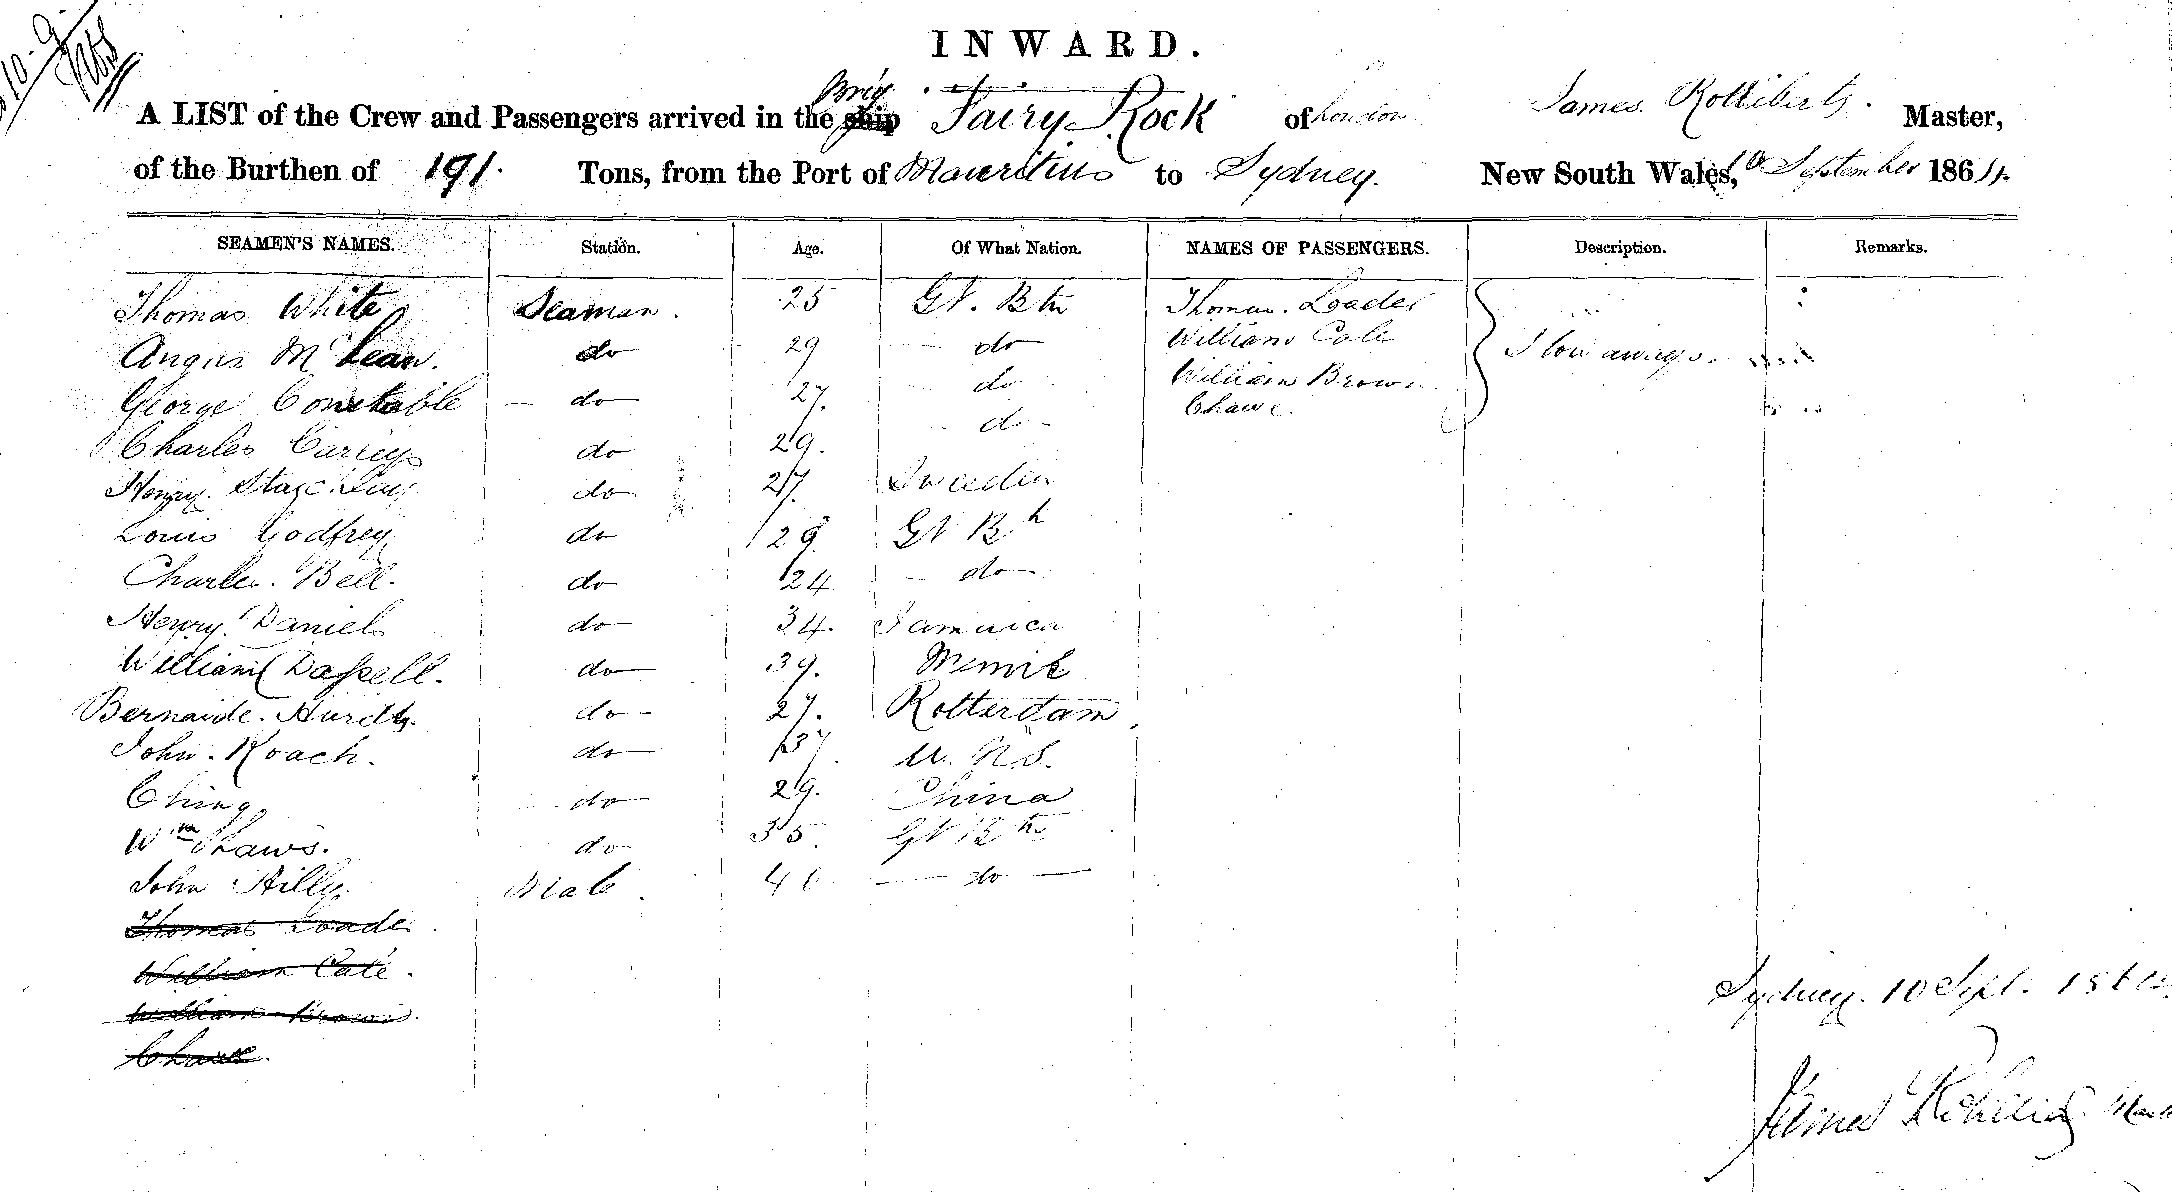 10-9
INWARD.
A LIST of the Crew and Passengers arrived in the ship Brig Fairy Rock of London James Master,
of the Burthen of 191. Tons, from the Port of Mauritius to Sydney. New South Wales, September 1864.
SEAMEN'S NAMES. Station. Age. Of What Nation. NAMES OF PASSENGERS. Description. Remarks.
Thomas White Seaman. 25 Gt. Btn Thomas Loader
Angus McLean. do 29 do William Cale Stowaways.
George Constable do 27. do William Brown
Charles do 29. do Chawe.
Henry do 27. Sweden
Louis Godfrey do 29 Gt Bh
Charles Bell. do 24 do
Henry Daniels do 34. Jamaica
William Dassell. do 39.
Bernarde do 27. Rotterdam
John Roach. do 37 U. N. S.
Ching do 29. China
Wm Shaws. do 35 Gt Btn
John Hilly Mate 40 do
Thomas Loader
William Cale.
William Brown.
Chawe.
Sydney. 10 Sept. 1864
James